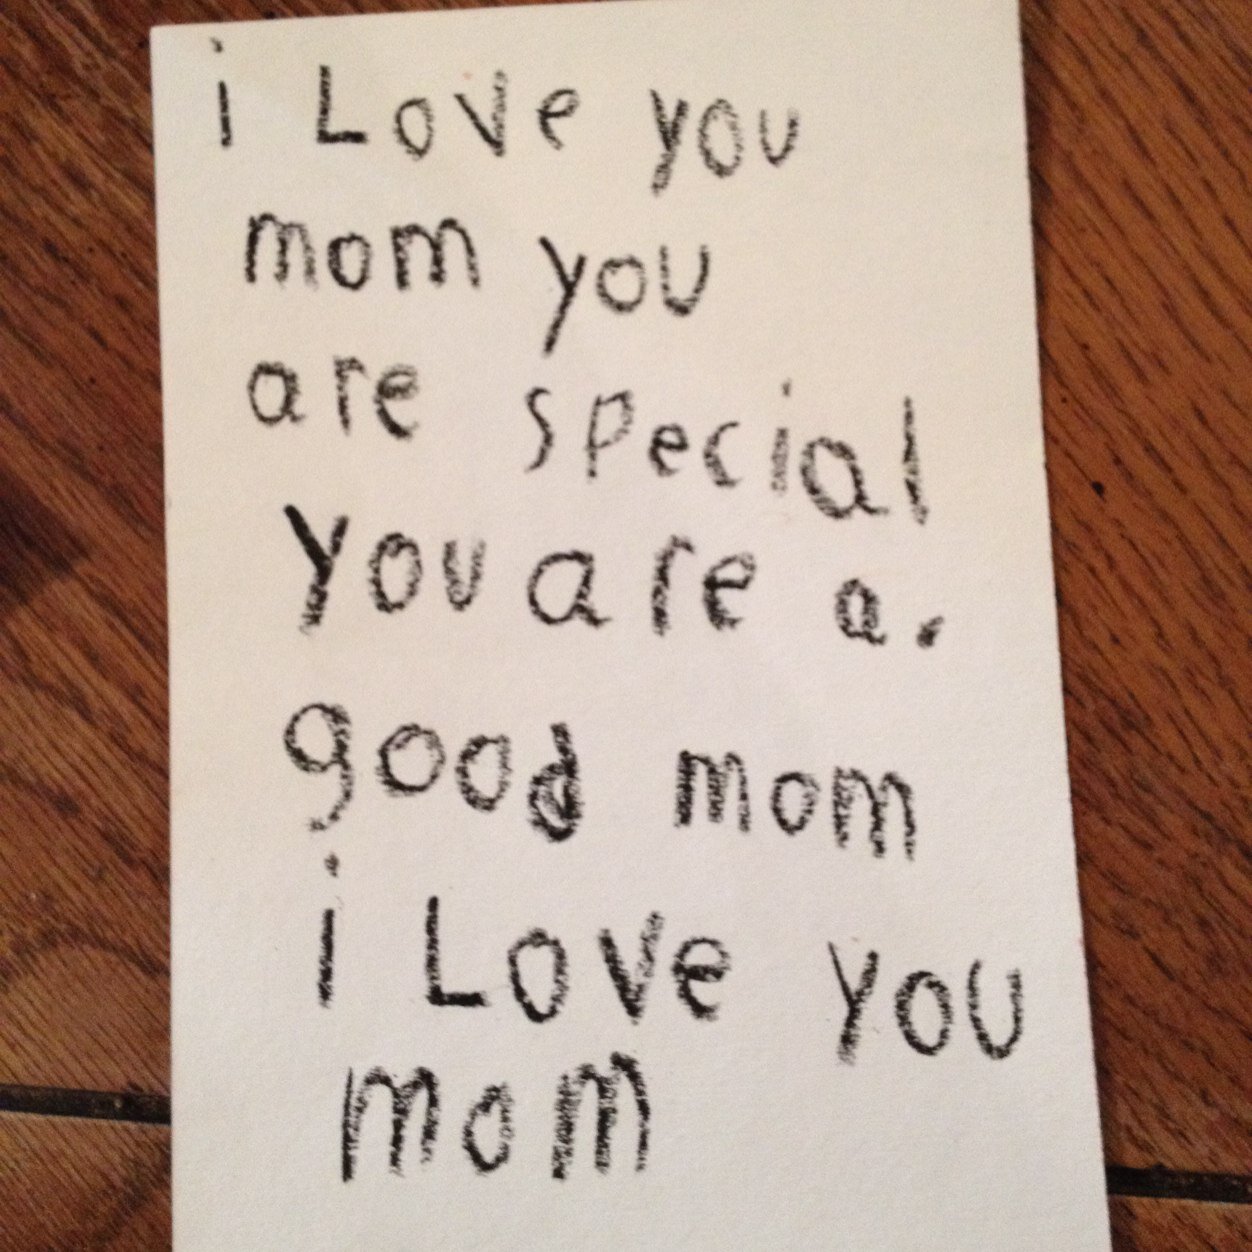 i Love you
mom you
are special
you are a.
good mom
i Love you
mom